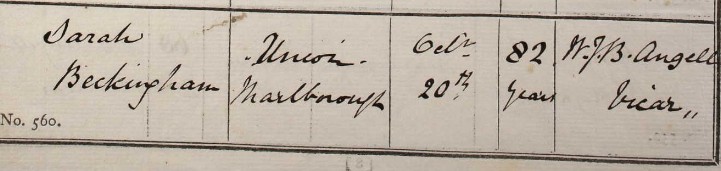 Sarah
Beckingham
No. 560.
Union
Marlborough
Octr
20th
82
years
W.J.B. Angell
Vicar